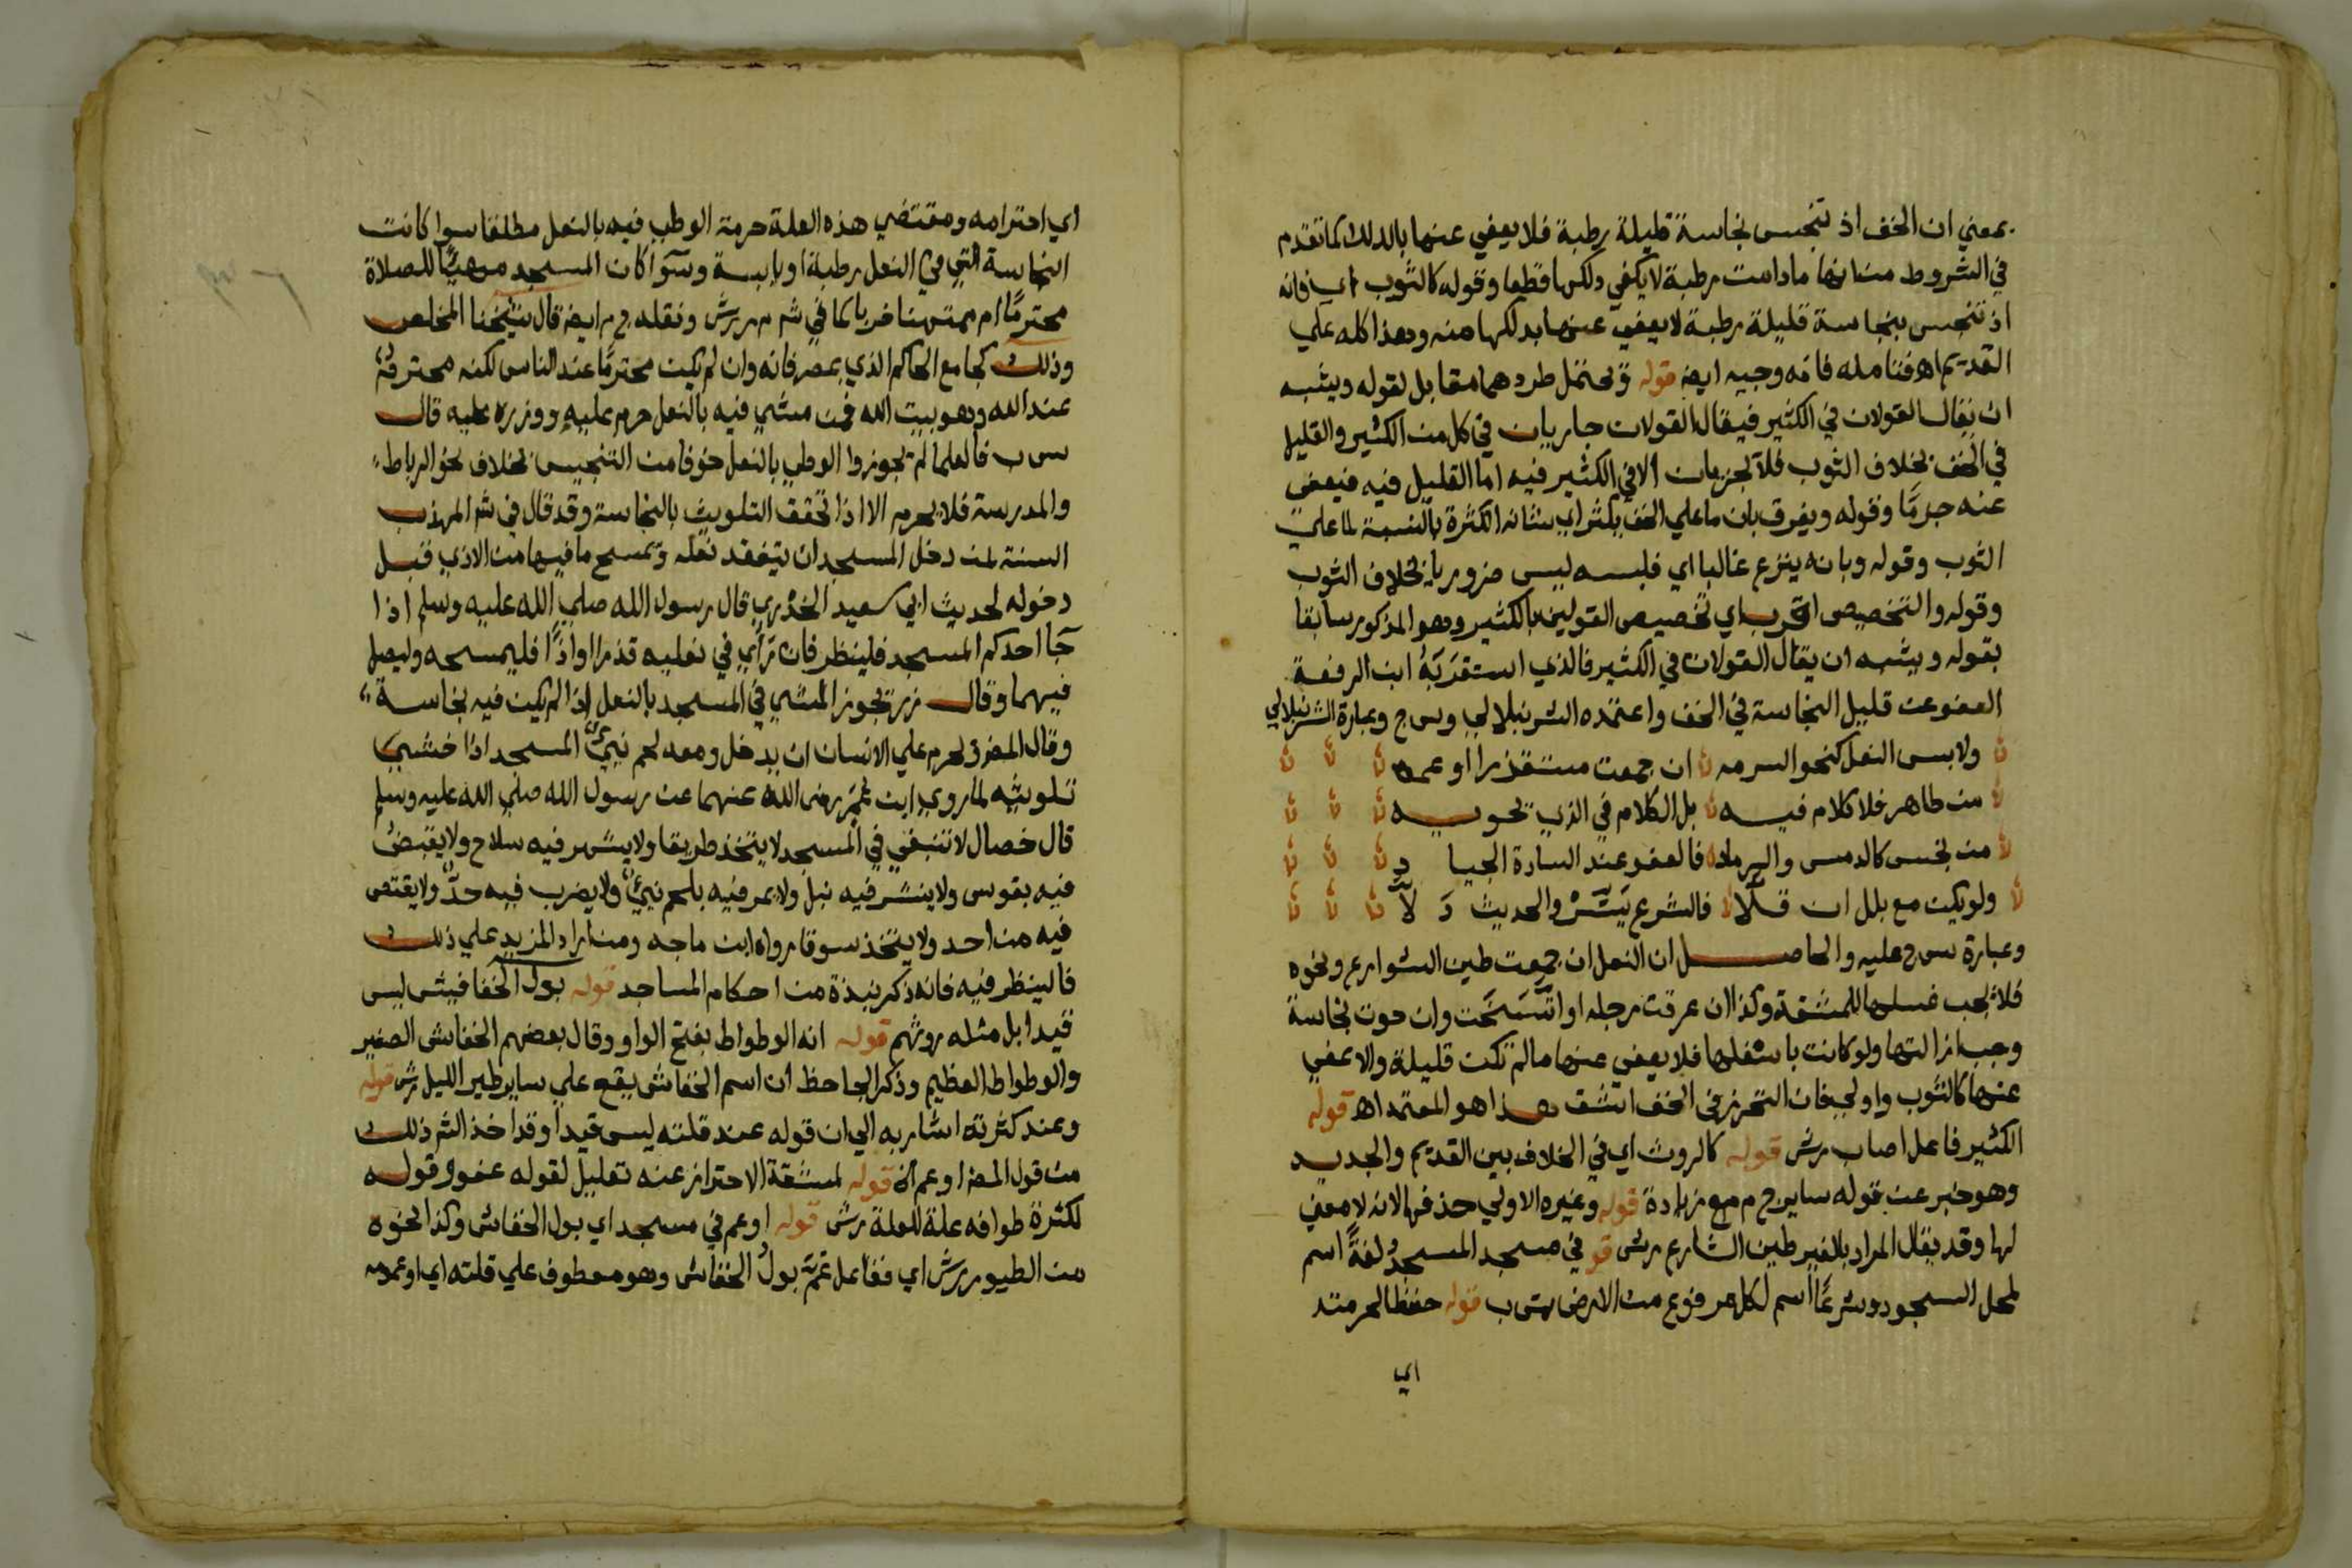 بمعني ان الخف اذ تنجس نجاسة قليلة رطبة فلا يعفي عنها بالدلك كما تقدم
في الشروط من انها مادامت رطبة لا يكفي دلكها قطعا وقوله كالثوب اي فانه
اذ تنجس بنجاسة قليلة رطبة لا يعفي عنها بدلكها منه وهذا كله علي
القديم اه فتامله فانه وجيه ايض قوله وتحتمل طردهما مقابل لقوله ويشبه
ان يقال القولان في الكثير فيقال القولان جاريان في كل من الكثير والقليل
في الخف بخلاف الثوب فلا يجزيان الا في الكثير فيه اما القليل فيه فيعفى
عنه جزمًا وقوله ويفرق بان ما علي الخف يكثر اي شانه الكثرة بالنسبة لما علي
الثوب وقوله وبانه ينزع غالبا اي فلبسه ليس ضروريا بخلاف الثوب
وقوله والتخصيص اقرب اي تخصيص القولين بالكثير وهو المذكور سابقا
بقوله ويشبه ان يقال القولان في الكثير فالذي استقربَهُ ابن الرفعة
العفو عن قليل النجاسة في الخف واعتمده الشرنبلالي وس ح وعبارة الشرنبلالي
ولابس النعل كنحو السرمه ان جمعت مستقذرا او عمه
من طاهر فلا كلام فيه بل الكلام في الذي تحويه
من نجس كالدمس والرماد فالعفو عند السادة الجياد
ولو يكن مع بلل ان قلّا فالشرع يَسَّرْ والحديث دَ لّا
وعبارة س ح عليه والحاصل ان النعل ان جمعت طين الشوارع ونحوه
فلا يجب غسلها للمشقة وكذا ان عرقت رجله او اتَّسَخَت وان حوت نجاسة
وجب ازالتها ولو كانت باسفلها فلا يعفي عنها مالم تكن قليلة والا عفي
عنها كالثوب واولي فان التحرز في الخف اشق هذا هو المعتمد اه قوله
الكثير فاعل اصاب رش قوله كالروث اي في الخلاف بين القديم والجديد
وهو خبر عن قوله ساير ح م مع زيادة قوله وغيره الاولي حذفها لانه لا معني
لها وقد يقال المراد بالغير طين الشارع رش قو في مسجد المسجدُ لغةً اسم
لمحل السجود وشرعًا اسم لكل مرفوع من الارض س ب قوله حفظا لحرمته
اي
اي احترامه ومقتضي هذه العلة حرمة الوطي فيه بالنعل مطلقا سوا كانت
النجاسة التي في النعل رطبة او يابسة وسوآ كان المسجد مهيًّا للصلاة
محترمًا ام ممتهنا خرابا كما في شم م ر رش ونقله ح م ايض قال شيخنا المخلص
وذلك كجامع الحاكم الذي بمصر فانه وان لم يكن محترمًا عند الناس لكنه محترم
عند الله وهو بيت الله فمن مشي فيه بالنعل حرم عليه ووزره عليه قال
س ب فالعلما لم يجوزوا الوطي بالنعل خوفا من التنجيس بخلاف نحو الرباط
والمدرسة فلا يحرم الا اذا تحقق التلويث بالنجاسة وقد قال في شم المهذب
السنة لمن دخل المسجد ان يتفقد نعله ويمسح ما فيها من الاذي قبل
دخوله لحديث ابي سعيد الخدري قال رسول الله صلي الله عليه وسلم اذا
جآ احدكم المسجد فلينظر فان رَأي في نعليه قذرا او اذًا فليمسحه وليصل
فيهما وقال زر تجوز المشي في المسجد بالنعل اذا لم يكن فيه نجاسة
وقال المض يحرم علي الانسان ان يدخل ومعه لحم نيئٌ المسجد اذا خشي
تلويثه لما روي ابن عُمَر رضى الله عنهما عن رسول الله صلي الله عليه وسلم
قال خصال لا تنبغي في المسجد لا يتخذ طريقا ولا يشهر فيه سلاح ولا يقبضُ
فيه بقوس ولا ينشر فيه نبل ولا يمر فيه بلحم نيئٍ ولا يضرب فيه حدٌّ ولا يقتص
فيه من احد ولا يتخذ سوقا رواه ابن ماجه ومن اراد المزيد علي ذلك
فالينظر فيه فانه ذكر نبذة من احكام المساجد قوله بول الخفا فيش ليس
قيدا بل مثله روثهم قوله انه الوطواط بفتح الواو وقال بعضهم الخفاش الصغير
والوطواط العظيم وذكر الجاحظ ان اسم الخفاش يقع علي ساير طير الليل رش قوله
وعند كثرته اشار به الي ان قوله عند قلته ليس قيدا وقد اخذ الشم ذلك
من قول المض او عم الخ قوله لمشقة الاحتراز عنه تعليل لقوله عفو وقوله
لكثرة طوافه علة للعلة رش قوله او عم في مسجد اي بول الخفاش وكذا نحوه
من الطيور رش اي ففاعل عَمَّ بولُ الخفاش وهو معطوف علي قلته اي او عمومه